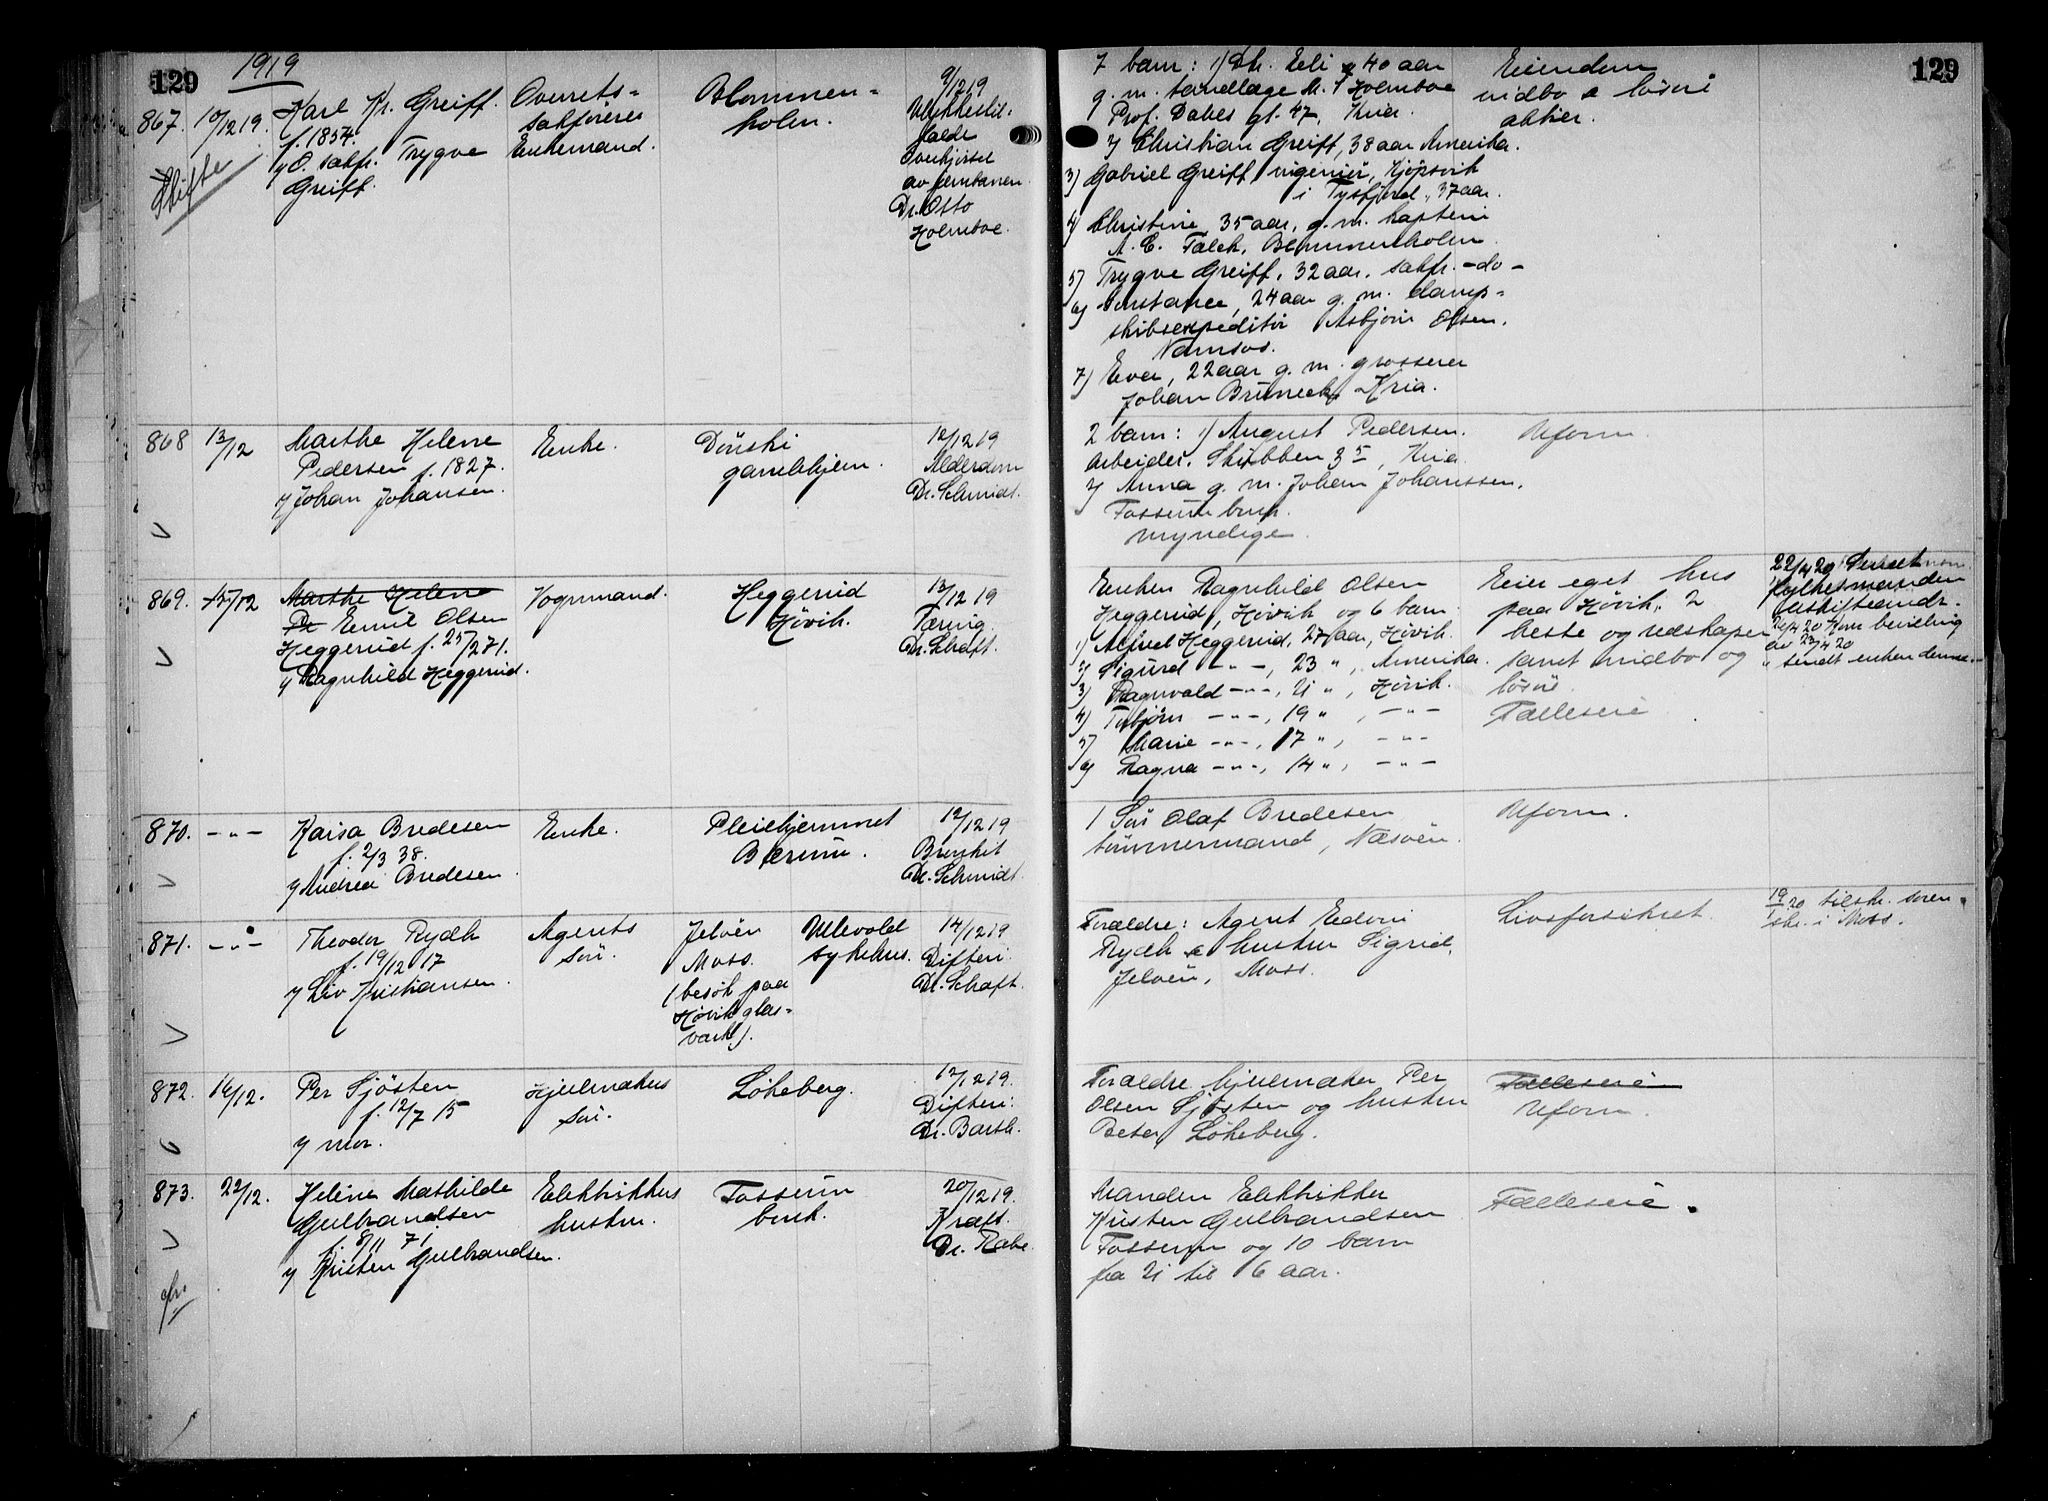 129
1919
867. 10/12 19. Karl Kr. Greiff. Overrets- Blommen- 9/12 19
f. 1854. sakfører holm. Ulykkestil-
v/ O. sakf. Trygve Enkemand. fælde
Greiff. Overkjørsel
Skifte av jernbanen
Dr. Otto
Holmboe.
868 13/12 Marthe Helene Enke. Dønski 12/12 19
Pedersen f. 1827. gamlehjem. Alderdom
v/ Johan Johansen. Dr. Schmidt.
869. 15/12 Marthe Helene Vognmand. Heggerud 13/12 19
Pe Emil Olsen Høvik. Tæring
Heggerud f. 25/2 71. Dr. Schaft.
v/ Ragnhild Heggerud.
870. -"- Kaisa Bredesen Enke. Pleiehjemmet 12/12 19
f. 2/3 38. Bærum. Bronkit
v/ Andrea Bredesen Dr. Schmidt.
871. -"- Theodor Rydh Agents Jeløen Ullevold 14/12 19
f. 19/12 17 søn. Moss. sykehus. Difteri.
v/ Liv Kristiansen. (besøk paa Dr. Schaft.
Høvik glas-
værk).
872. 16/12. Per Sjøsten Hjulmakers Løkeberg. 12/12 19.
f. 12/7 15 søn. Difteri.
v/ mor. Dr. Barth.
873. 22/12. Helene Mathilde Elektrikkers Fossum 20/12 19.
Gulbrandsen hustru. bruk. Kræft.
f. 8/11 71. Dr. Rabe.
v/ Kristen Gulbrandsen.
129
7 barn: 1) Eli 40 aar Eiendom
g. m. tandlæge Holmboe indbo & løsøre
Prof. Dahls gt. 47, Kria. aktier.
2) Christian Greiff, 38 aar Amerika.
3) Gabriel Greiff, ingeniør, Kjøpsvik
i Tysfjord, 37 aar.
4) Christine, 35 aar, g. m. kaptein
A. C. Falch, Blommenholm
5) Trygve Greiff, 32 aar. sakf. -do-
6) Constance, 24 aar g. m. damp-
skibsexpeditør Asbjørn Olsen.
Namsos.
7) Eva, 22 aar g. m. grosserer
Johan Brunech, Kria.
2 barn: 1) August Pedersen. Uform.
arbeider. Skibben 35, Kria.
2) Anna g. m. Johan Johanssen.
Fossum bruk.
myndige.
Enken Ragnhild Olsen Eier eget hus 22/4 20
Heggerud, Høvik og 6 barn paa Høvik, 2 fylkesmanden
1) Alfred Heggerud, 27 aar, Høvik. heste og redskaper bevilling
2) Sigurd -"-, 23 ", Amerika. samt indbo og sendt enken denne.
3) Ragnvald -"-, 21 ", Høvik. løsøre.
4) Torbjørn -"-, 19 ", -"- Fælleseie
5) Marie -"-, 17 ", -"-
6) Ragna -"-, 14 ", -"-
1 Søn Olaf Bredesen Uform.
tømmermand, Næsøen.
Forældre: Agent Edvin Livsforsikret. 19/1 20 tilsk. soren-
Rydh & hustru Sigrid, skr. i Moss.
Jeløen, Moss.
Forældre hjulmaker Per Fælleseie
Olsen Sjøsten og hustru Uform.
Beta, Løkeberg.
Manden Elektrikker Fælleseie.
Kristen Gulbrandsen
Fossum og 10 barn
fra 21 til 6 aar.